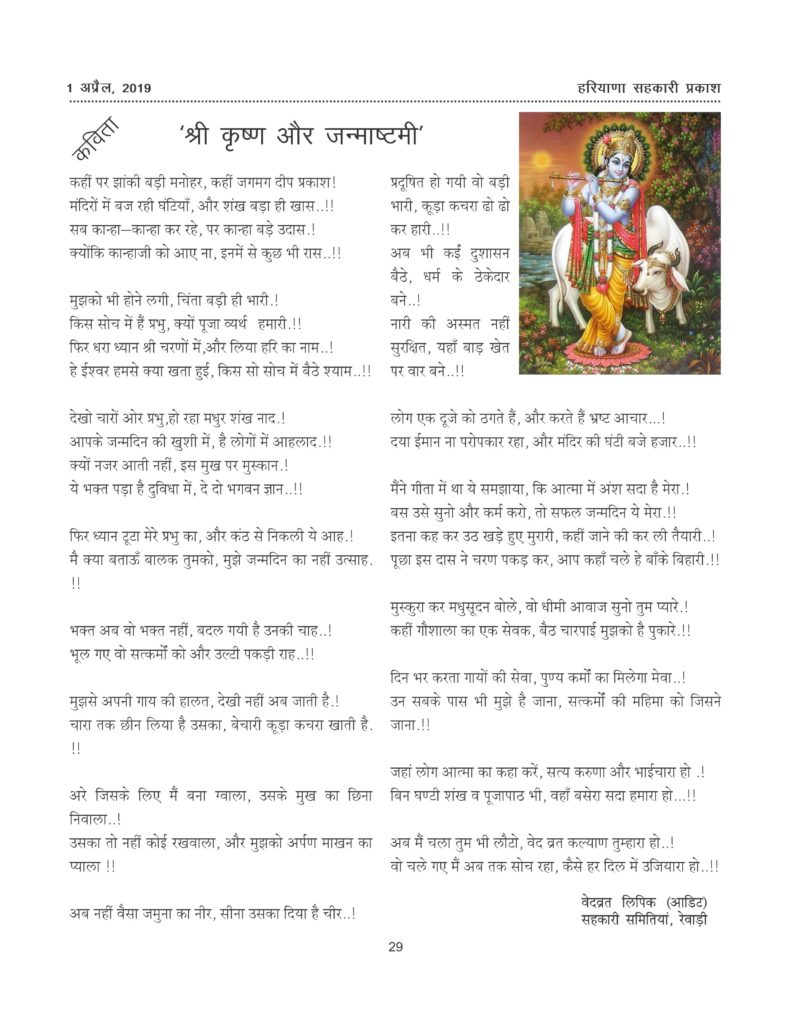 1 अप्रैल, 2019
हरियाणा सहकारी प्रकाश
कविता
‘श्री कृष्ण और जन्माष्टमी’
कहीं पर झांकी बड़ी मनोहर, कहीं जगमग दीप प्रकाश!
मंदिरों में बज रही घंटियाँ, और शंख बड़ा ही खास..!!
सब कान्हा–कान्हा कर रहे, पर कान्हा बड़े उदास.!
क्योंकि कान्हाजी को आए ना, इनमें से कुछ भी रास..!!
मुझको भी होने लगी, चिंता बड़ी ही भारी.!
किस सोच में हैं प्रभु, क्यों पूजा व्यर्थ हमारी.!!
फिर धरा ध्यान श्री चरणों में,और लिया हरि का नाम..!
हे ईश्वर हमसे क्या खता हुई, किस सो सोच में बैठे श्याम..!!
देखो चारों ओर प्रभु,हो रहा मधुर शंख नाद.!
आपके जन्मदिन की खुशी में, है लोगों में आहलाद.!!
क्यों नजर आती नहीं, इस मुख पर मुस्कान.!
ये भक्त पड़ा है दुविधा में, दे दो भगवन ज्ञान..!!
फिर ध्यान टूटा मेरे प्रभु का, और कंठ से निकली ये आह.!
मै क्या बताऊँ बालक तुमको, मुझे जन्मदिन का नहीं उत्साह.
!!
भक्त अब वो भक्त नहीं, बदल गयी है उनकी चाह..!
भूल गए वो सत्कर्मों को और उल्टी पकड़ी राह..!!
मुझसे अपनी गाय की हालत, देखी नहीं अब जाती है.!
चारा तक छीन लिया है उसका, बेचारी कूड़ा कचरा खाती है.
!!
अरे जिसके लिए मैं बना ग्वाला, उसके मुख का छिना
निवाला..!
उसका तो नहीं कोई रखवाला, और मुझको अर्पण माखन का
प्याला !!
अब नहीं वैसा जमुना का नीर, सीना उसका दिया है चीर..!
प्रदूषित हो गयी वो बड़ी
भारी, कूड़ा कचरा ढो ढो
कर हारी..!!
अब भी कईं दुशासन
बैठे, धर्म के ठेकेदार
बने..!
नारी की अस्मत नहीं
सुरक्षित, यहाँ बाड़ खेत
पर वार बने..!!
लोग एक दूजे को ठगते हैं, और करते हैं भ्रष्ट आचार...!
दया ईमान ना परोपकार रहा, और मंदिर की घंटी बजे हजार..!!
मैंने गीता में था ये समझाया, कि आत्मा में अंश सदा है मेरा.!
बस उसे सुनो और कर्म करो, तो सफल जन्मदिन ये मेरा.!!
इतना कह कर उठ खड़े हुए मुरारी, कहीं जाने की कर ली तैयारी..!
पूछा इस दास ने चरण पकड़ कर, आप कहाँ चले हे बाँके बिहारी.!!
मुस्कुरा कर मधुसूदन बोले, वो धीमी आवाज सुनो तुम प्यारे.!
कहीं गौशाला का एक सेवक, बैठ चारपाई मुझको है पुकारे.!!
दिन भर करता गायों की सेवा, पुण्य कर्मों का मिलेगा मेवा..!
उन सबके पास भी मुझे है जाना, सत्कर्मों की महिमा को जिसने
जाना.!!
जहां लोग आत्मा का कहा करें, सत्य करुणा और भाईचारा हो .!
बिन घण्टी शंख व पूजापाठ भी, वहाँ बसेरा सदा हमारा हो...!!
अब मैं चला तुम भी लौटो, वेद व्रत कल्याण तुम्हारा हो..!
वो चले गए मैं अब तक सोच रहा, कैसे हर दिल में उजियारा हो..!!
वेदव्रत लिपिक (आडिट)
सहकारी समितियां, रेवाड़ी
29